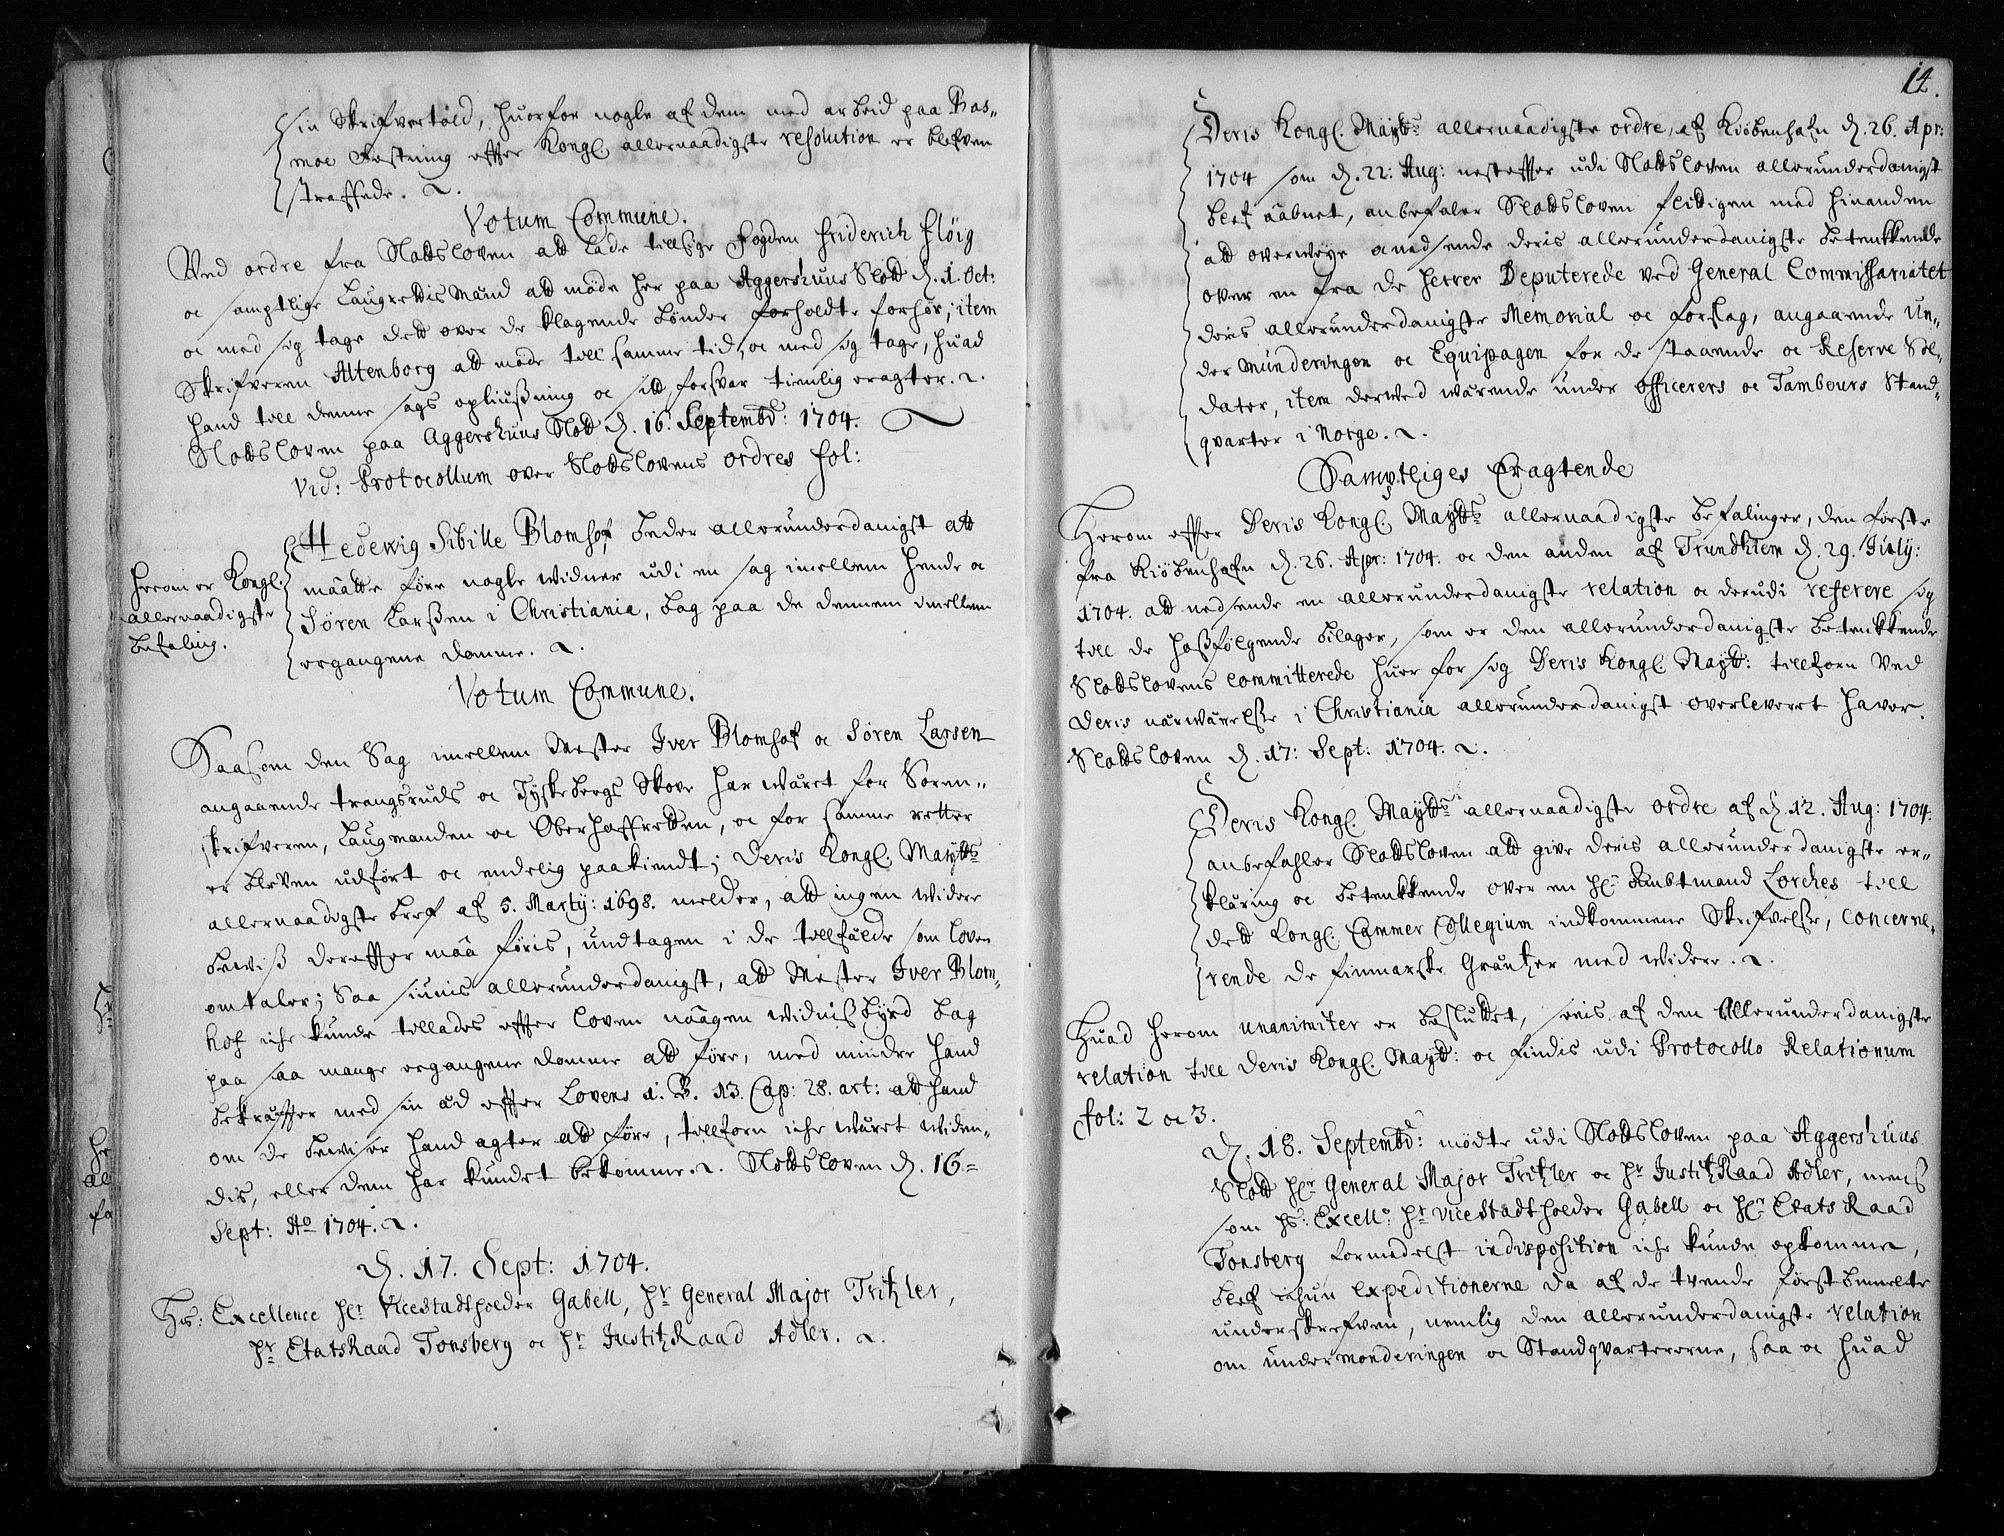 sin Skrifvertøld, huorfor nogle af dem med arbeid paa Bas-
moe Fæstning effter Kongl. allernaadigste resolution er blefven
straffede.
Votum Commune.
Ved ordre fra Slottsloven att lade tillsige Fogden Friderich Fløig
oc samptlige Laugrettis Mænd att møde her paa Aggershuus Slott d. 1. Oct:
oc med sig tage dett over de klagende bønder forholdte forhør, item
Skrifveren Altenborg att møde till samme tid, oc med sig tage, huad
hand till denne sags opliusning oc sitt forsvar tienlig eragter.
Slottsloven paa Aggershuus Slott d. 16. Septembr: 1704.
Vid: Protocollum over Slottslovens ordres fol:
Hedewig Sibille Blomhof beder allerunderdanigst att
maatte føre nogle widner udi en sag imellem hende oc
Søren Larssen i Christiania, bag paa de dennem imellem
ergangene domme.
Herom er Kongl.
allernaadigste
befaling.
Votum Commune.
Saasom den Sag imellem Mester Iver Blomhof oc Søren Larsen
angaaende trangsruds oc Tyskebergs Skove har wæret for Soren-
skrifveren, Laugmanden oc Oberhoffretten, oc for samme retter
er bleven udført oc endelig paakiendt; Deris Kongl. Maytts
allernaadigste bref af 5. Marty: 1698. melder, att ingen widere
bewiss dereffter maa føris, undtagen i de tillfælde som loven
omtaler; Saa siunis allerunderdanigst, att Mester Iver Blom-
hof iche kunde tillades effter loven naagen widnissbyrd bag
paa saa mange ergangene domme att føre, med mindre hand
bekræffter med sin æd effter Lovens 1. B. 13. Cap: 28. art: att hand
om de bewiser hand agter att føre, tillforn iche wæret widen-
dis, eller dem har kundet bekomme. Slottsloven d. 16=
Sept: Ao 1704.
D. 17. Sept: 1704.
Hs: Excellence Hr Vicestadtholder Gabell, Hr General Major Tritzler,
Hr EtatsRaad Tonsberg oc Hr JustitzRaad Adler.
14.
Deris Kongl. Maytts allernaadigste ordre, af Kiøbenhafn d. 26. Apr:
1704 som d. 22: Aug: nesteffter udi Slottsloven allerunderdanigst
blef aabnet, anbefaler Slottsloven flittigen med hinanden
att overweye oc nedsende deris allerunderdanigste betenkkende
over en fra de herrer Deputerede ved General Commissariatet
deris allerunderdanigste Memorial oc forslag, angaaende Un-
der Munderingen oc Equipagen for de staaende oc Reserve Sol-
dater, item derwed wærende under officerers oc Tambours Stand-
qvarter i Norge.
Samptliges Eragtende
Herom effter Deris Kongl. Maytts allernaadigste befalinger, den første
fra Kiøbenhafn d. 26. Apr: 1704. oc den anden af Trundhiem d. 29. July:
1704. att nedsende en allerunderdanigste relation oc derudi referere sig
till de hossfølgende bilager, som er den allerunderdanigste betenkkende
Slottslovens committerede huer for sig Deris Kongl. Maytt: tillforn Ved
Deris nærwærelse i Christiania allerunderdanigst overleveert haver.
Slottsloven d. 17: Sept: 1704.
Deris Kongl. Maytts allernaadigste ordre af d. 12. Aug: 1704.
anbefahler Slottsloven att give deris allerunderdanigste er-
klæring oc betenkkende over en Hr Ambtmand Lorches till
dett Kongl. Cammer Collegium indkommene Skrifvelse, concerne-
rende de finmarske Græntzer med widere.
Huad herom unanimiter er besluttet, seeis af den Allerunderdanigste
relation till Deris Kongl. Maytt: oc findis udi Protocollo Relationum
fol: 2 oc 3.
D. 18. Septembr: mødte udi Slottsloven paa Aggershuus
Slott Hr General Major Tritzler oc Hr JustitzRaad Adler, mens
som Hs: Excell: Hr Vicestadtholder Gabell oc Hr Etats Raad
Tonsberg formedelst indisposition iche kunde opkomme,
blef ichun Expeditionerne da af de tvende først bemelte
underskrefven, nemlig den allerunderdanigste relation
om undermonderingen oc Standqvartererne, saa oc huad